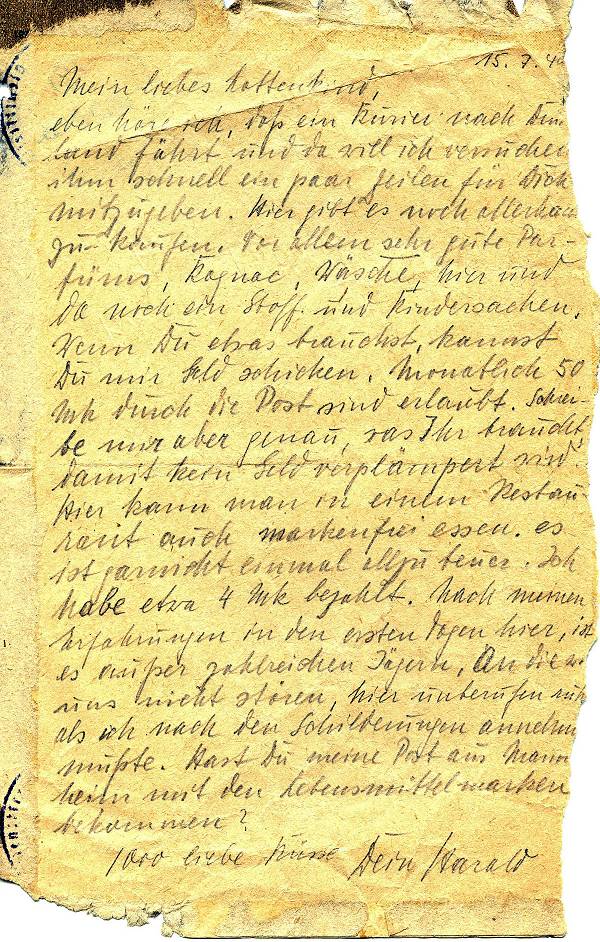 15. 7. 4
Mein liebes Kattenkind,
eben höre ich, daß ein Kurier nach
land fährt und da will ich versuchen
ihm schnell ein paar Zeilen für Dich
mitzugeben. Hier gibt es noch allerhand
zu kaufen. Vor allem sehr gute Par-
füms, Kognac, Wäsche, hier und
da noch ein Stoff und Kindersachen.
Wenn Du etwas brauchst, kannst
Du mir Geld schicken. Monatlich 50
Mk durch die Post sind erlaubt. Schrei-
be mir aber genau, was Ihr braucht,
damit kein Geld verplämpert wird.
Hier kann man in einem Restau-
rant auch markenfrei essen. es
ist garnicht einmal allzu teuer. Ich
habe etwa 4 Mk bezahlt. Nach meinen
Erfahrungen in den ersten Tagen hier, ist
es außer zahlreichen Jägern, An die wir
uns nicht stören, hier
als ich nach den Schilderungen annehmen
mußte. Hast Du meine Post aus Mann
heim mit den Lebensmittelmarken
bekommen?
1000 liebe Küsse Dein Harald